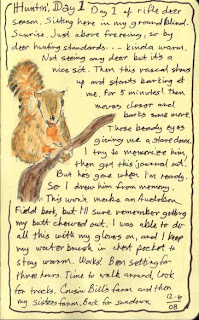 Huntin', Day 1 Day 1 of rifle deer
season. Sitting here in my ground blind.
Sunrise. Just above freezing, so by
deer hunting standards--- kinda warm.
Not seeing any deer but it's a
nice sit. Then this rascal shows
up and starts barking at
me. For 5 minutes! Then
moves closer and
barks some more.
Those beady eyes
giving me a stare down.
I try to memorize him,
then got this journal out.
But he's gone when I'm ready.
So I drew him from memory.
This won't make an Audubon
Field book, but I'll sure remember getting
my butt chewed out. I was able to do
all this with my gloves on, and I keep
my water brush in chest pocket to
stay warm. Works! Been setting for
three hours. Time to walk around, look
for tracks. Cousin Bill's farm and then
my sisters farm. Back for sundown
12-6
08